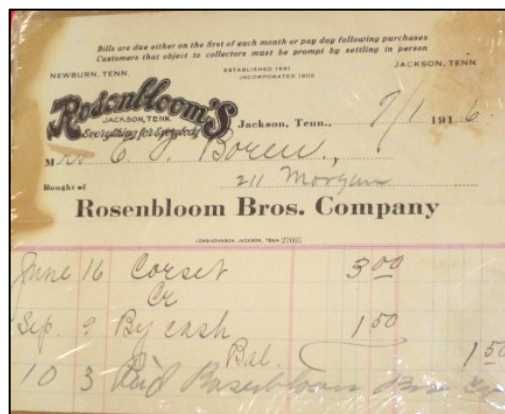 Bills are due either on the first of each month or pay day following purchases
Customers that object to collectors must be prompt by settling in person
NEWBURN, TENN. ESTABLISHED 1891 JACKSON, TENN
INCORPORATED 1905
Rosenbloom's
JACKSON, TENN.
Everything for Everybody
Jackson, Tenn., 9/1 1916.
Mrs C. J. Boren.,
Bought of 211 Morgan
Rosenbloom Bros. Company
LONG-JOHNSON, JACKSON, TENN 27005
June 16 Corset 3.00
Cr
Sep. 9 By cash 1 50
Bal. 1 50
10 3 Paid Rosenbloom Bros